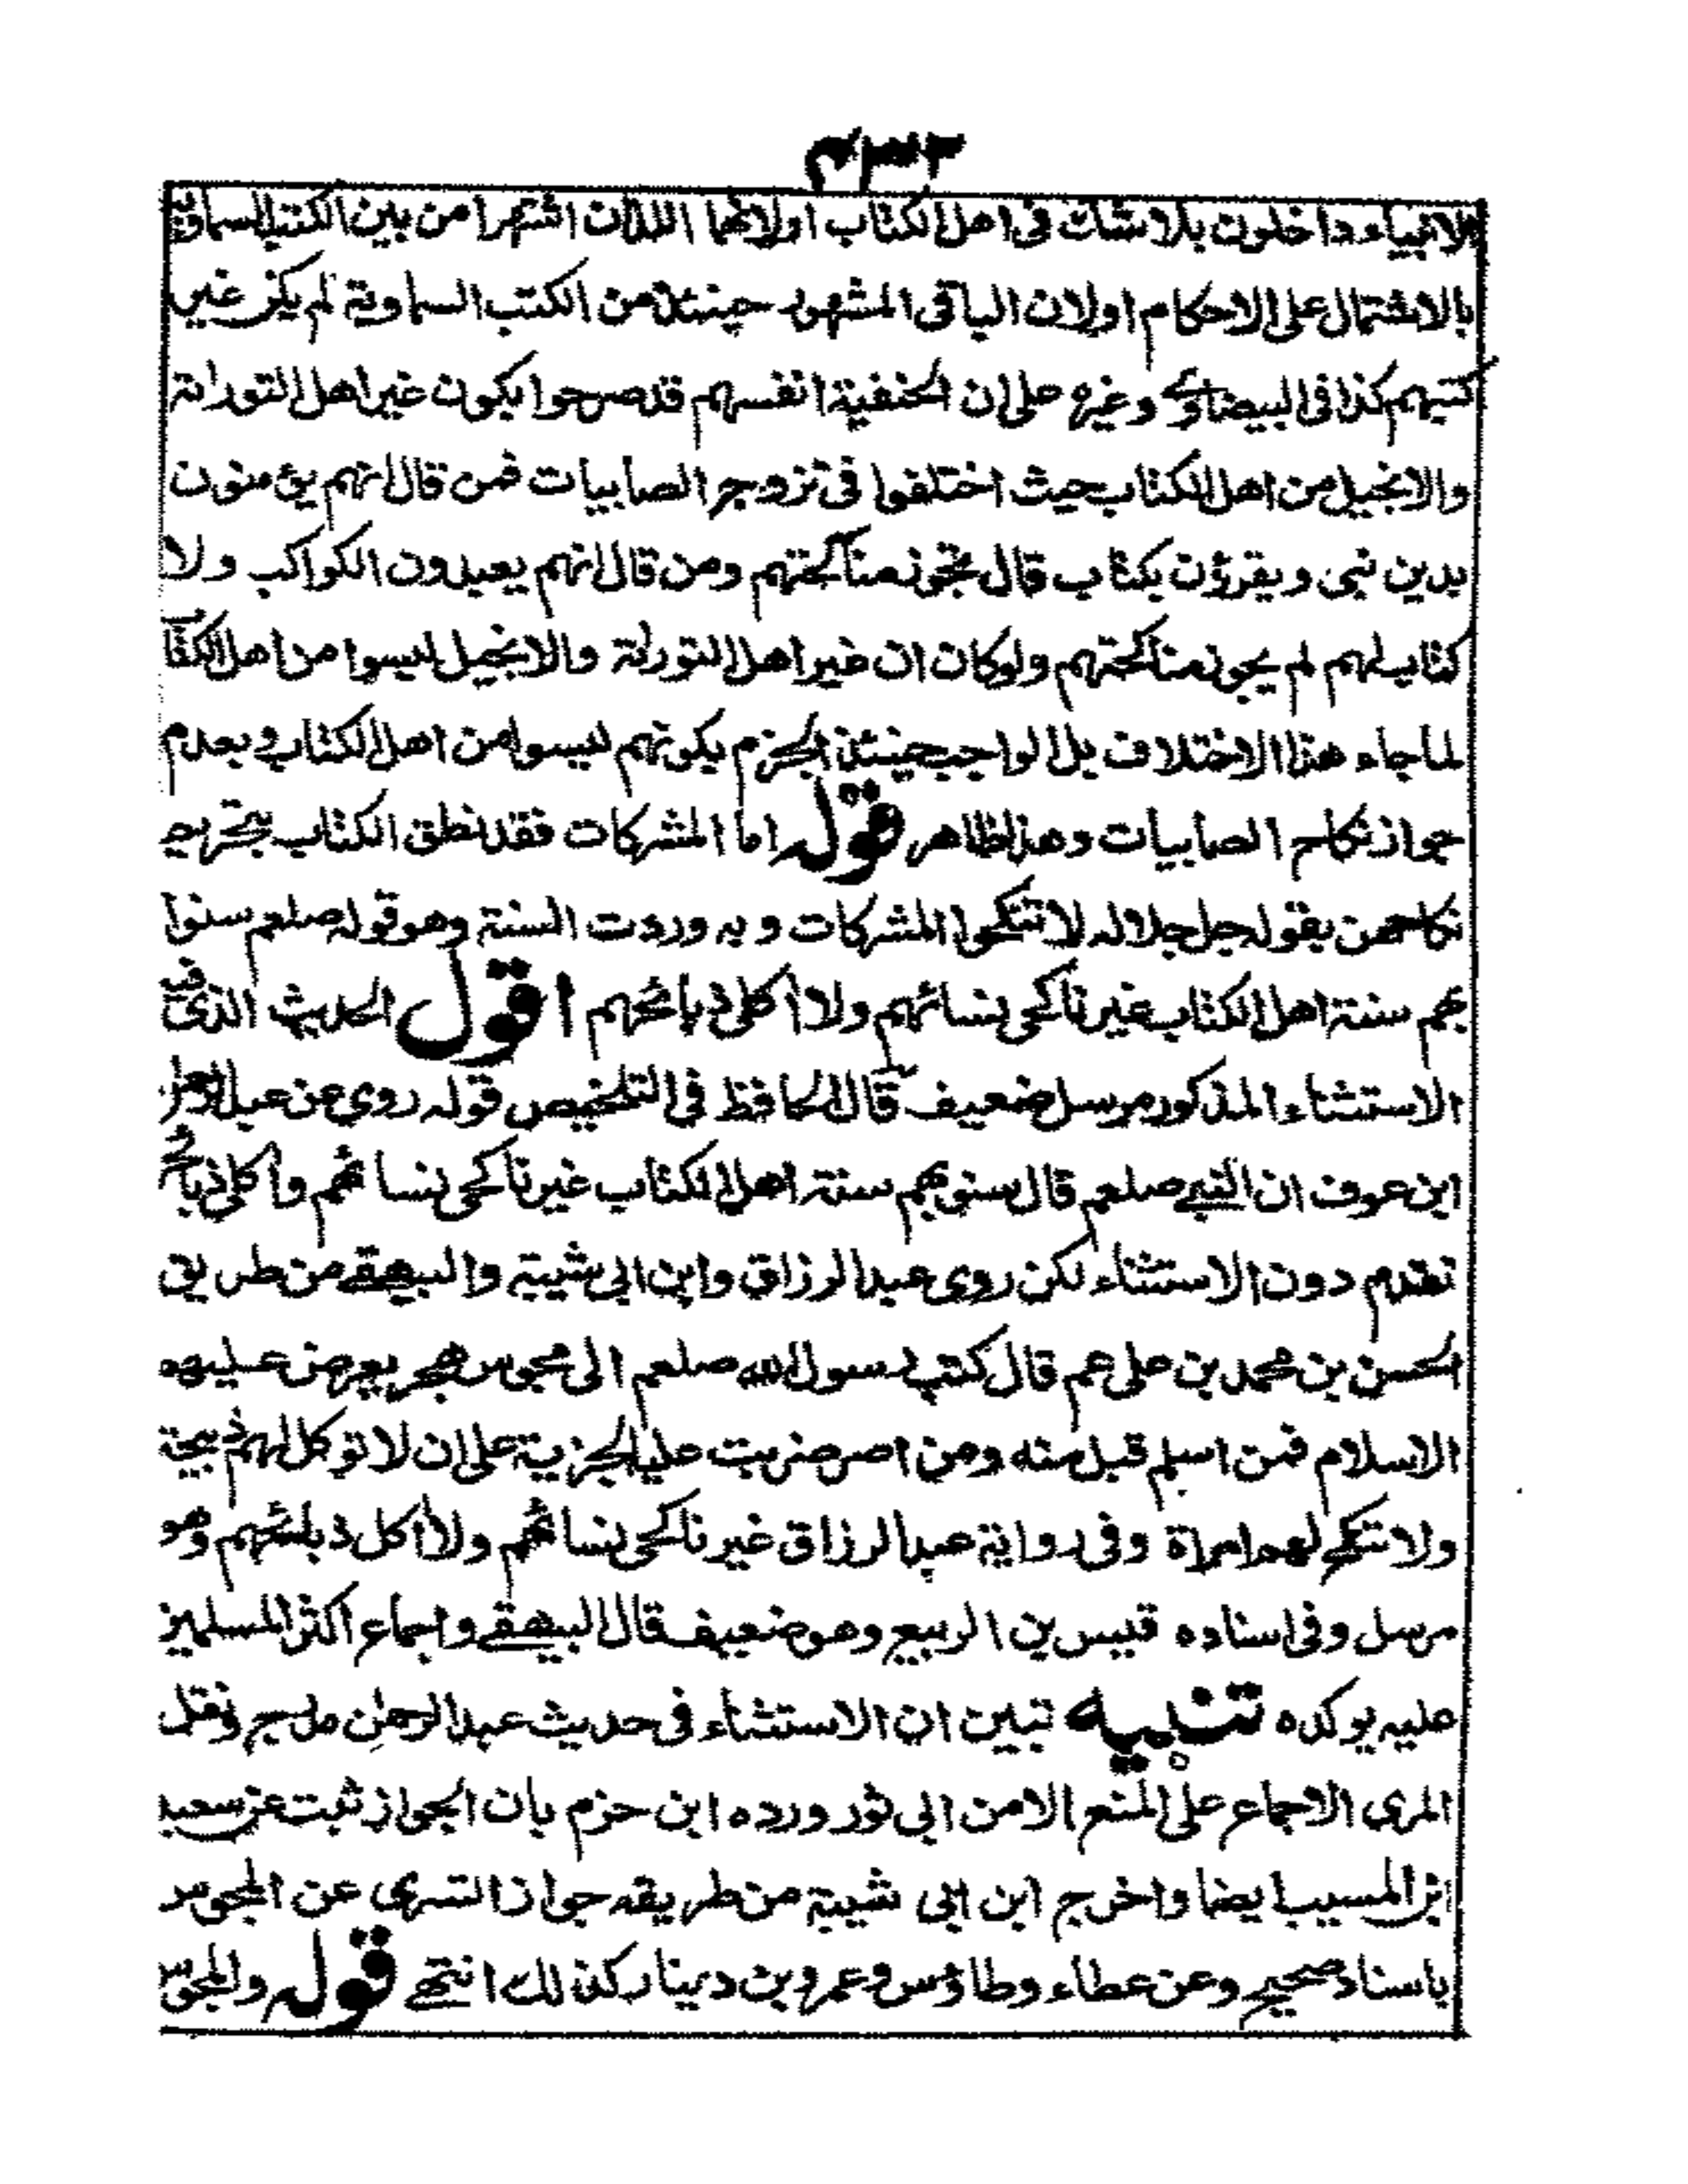 ٤٣٣
الانبياء داخلون بلا شك فى اهل الكتاب اولانهما اللذان اشتهرا من بين الكتب السماوية
بالاشتمال على الاحكام اولان الباقى المشهور حينئذ من الكتب السماوية لم يكن غير
كتبهم كذا فى البيضاوى وغيره على ان الحنفية انفسهم قد صرحوا بكون غير اهل التوراة
والانجيل من اهل الكتاب حيث اختلفوا فى تزوج الصابيات فمن قال انهم يؤمنون
بدين نبى ويقرؤن بكتاب قال تجوز مناكحتهم ومن قال انهم يعبدون الكواكب ولا
كتاب لهم لم يجوز مناكحتهم ولو كان ان غير اهل التوراة والانجيل ليسوا من اهل الكتاب
لما جاء هذا الاختلاف بل الواجب حينئذ الجزم بكونهم ليسوا من اهل الكتاب وبعدم
جواز نكاح الصابيات وهذا ظاهر قوله اما المشركات فقد نطق الكتاب بتحريم
نكاحهن بقوله جل جلاله لا تنكحوا المشركات وبه وردت السنة وهو قوله صلعم سنوا
بهم سنة اهل الكتاب غير ناكحى نسائهم ولا اكلى ذبائحهم اقول الحديث الذى فيه
الاستثناء المذكور مرسل ضعيف قال الحافظ فى التلخيص قوله روى عن عبد الرحمن
ابن عوف ان النبي صلعم قال سنو بهم سنة اهل الكتاب غير ناكحى نسائهم واكلى ذبائحهم
تقدم دون الاستثناء لكن روى عبد الرزاق وابن ابى شيبة والبيهقي من طريق
الحسن بن محمد بن على عم قال كتب رسول الله صلعم الى مجوس هجر يعرض عليهم
الاسلام فمن اسلم قبل منه ومن اصر ضربت عليه الجزية على ان لا توكل لهم ذبيحة
ولا تنكح لهم امراة وفى رواية عبد الرزاق غير ناكحى نسائهم ولا اكل ذبائحهم وهو
مرسل وفى اسناده قيس بن الربيع وهو ضعيف قال البيهقي واجماع اكثر المسلمين
عليه يوكده تنبيه تبين ان الاستثناء فى حديث عبد الرحمن مدرج ونقل
المرى الاجماع على المنع الا من ابى ثور ورده ابن حزم بان الجواز ثبت عن سعيد
ابن المسيب ايضا واخرج ابن ابى شيبة من طريقه جواز التسرى عن المجوس
باسناد صحيح وعن عطاء وطاؤس وعمرو بن دينار كذلك انتهى قوله والمجوس